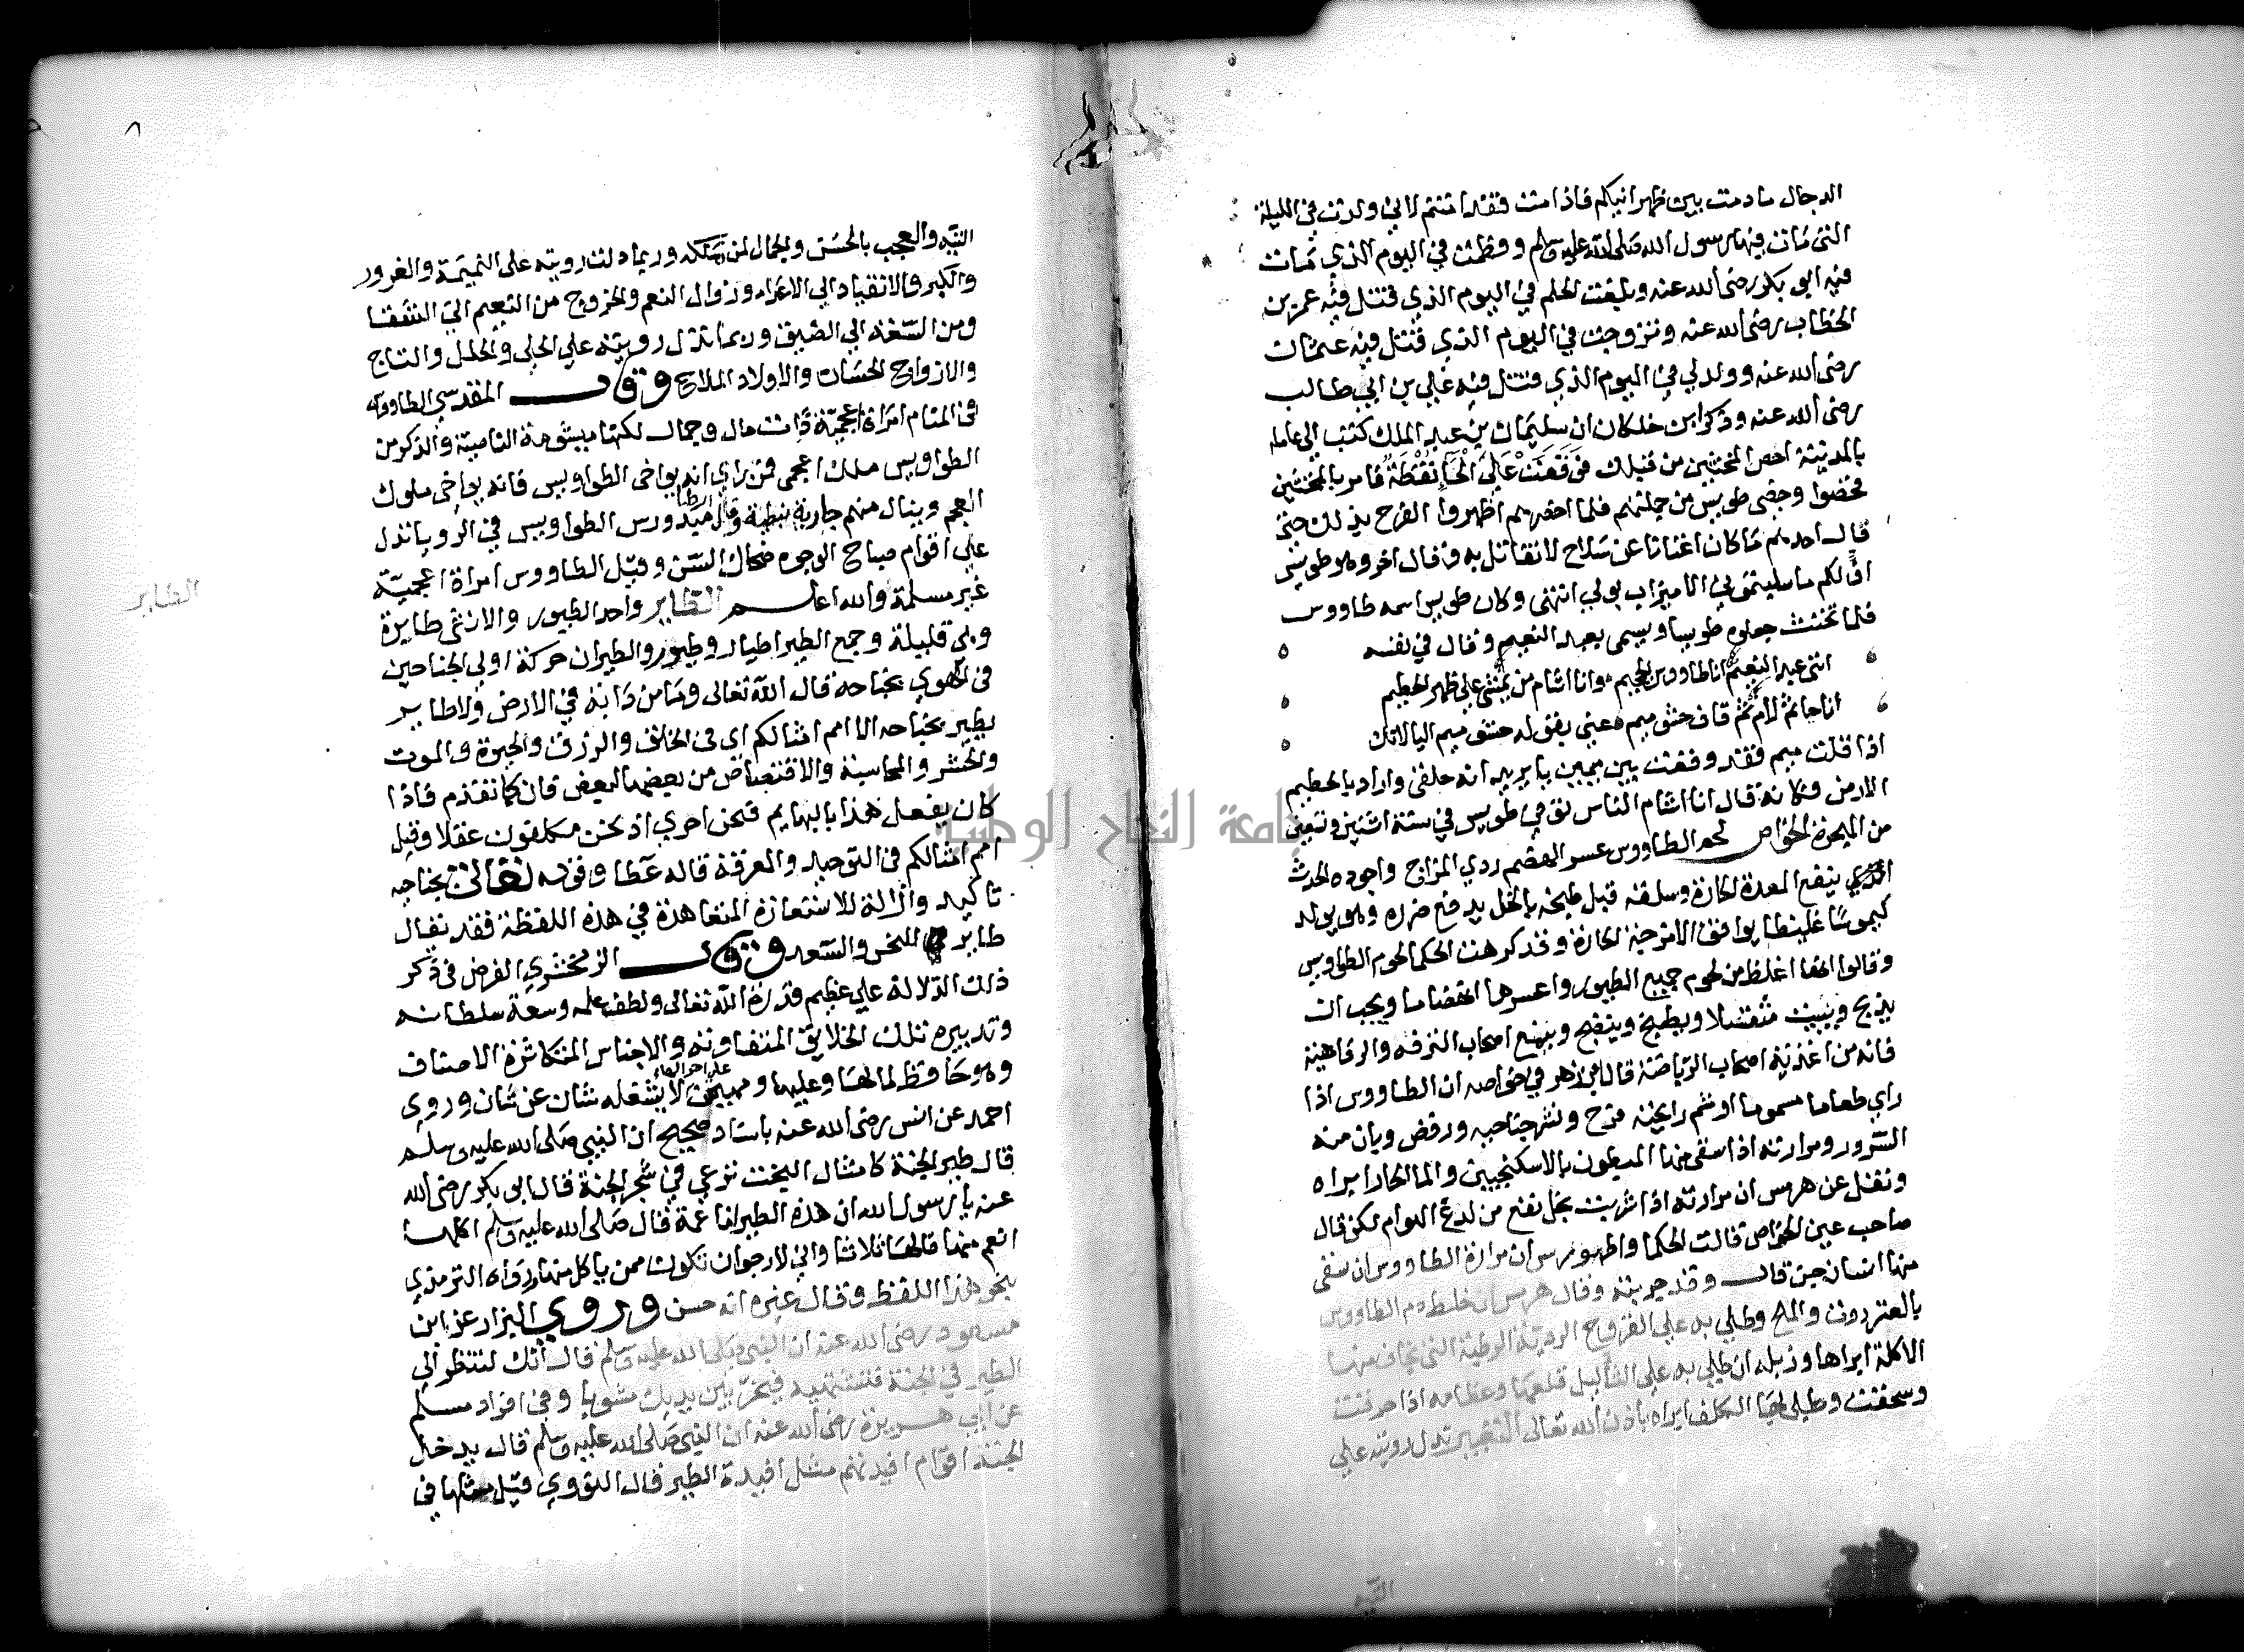 الدجال ما دمت بين ظهرانيكم فاذا مت فقد امنتم لاني ولدت في الليلة
التي مات فيها رسول الله صلى الله عليه وسلم وفطمت في اليوم الذي مات
فيه ابو بكر رضى الله عنه وبلغت الحلم في اليوم الذي قتل فيه عمر بن
الخطاب رضى الله عنه وتزوجت في اليوم الذي قتل فيه عثمان
رضى الله عنه وولد لي في اليوم الذي قتل فيه علي بن ابي طالب
رضى الله عنه وذكر ابن خلكان ان سليمان بن عبد الملك كتب الى عامله
بالمدينة احص المخنثين من قبلك فوقعت على الحا نقطة فامر بالمخنثين
فخصوا وخصى طويس من جملتهم فلما اظهروا الفرح بذلك حتى
قال احدهم ما كان اغنانا عن سلاح لا نقاتل به وقال اخر وهو طويس
اف لكم ما سلبتموني الا ميزاب بولي انتهى وكان طويس اسمه طاووس
فلما تخنث جعلوه طويسا ويسمى بعبد النعيم وقال في نفسه
انني عبد النعيم انا طاووس الجحيم وانا اشام من يمشي على ظهر الحطيم
انا حا ثم لام ثم قاف حشو ميم يعني بقوله حشو ميم اليا لانك
اذا قلت ميم فقد وقعت بين ميمين يا يريد انه حلقى واراد بالحطيم
الارض وكانه قال انا اشام الناس توفي طويس في سنة اثنين وتسعين
من الهجرة الخواص لحم الطاووس عسر الهضم ردي المزاج واجوده الحدث
ينفع المعدة الحارة وسلقه قبل طبخه بالخل يدفع ضرره وهو يولد
كيموسا غليظا يوافق الامزجة الحارة وقد كرهت الحكما لحوم الطواويس
وقالوا انها اغلظ من لحوم جميع الطيور واعسرها انهضاما ويجب ان
يذبح ويبيت مثقلا ويطبخ وينضج ويمنع اصحاب الترفه والرفاهية
فانه من اغذية اصحاب الرياضة قال ابن زهر في خواصه ان الطاووس اذا
راى طعاما مسموما او شم رايحته فرح ونشر جناحيه ورقص وبان منه
السرور ومرارته اذا سقى منها المبطون بالاسكنجبين والما الحار ابراه
ونقل عن هرمس ان مرارته اذا شربت بخل تنفع من لدغ الهوام لكن قال
صاحب عين الخواص قالت الحكما واطهورس ان مرارة الطاووس ان سقى
منها انسان جن قال وقد جربته وقال هرمس ان خلط دم الطاووس
بالعنزروت والملح وطلي به على القروح الردية الرطبة التي يخاف منها
الاكلة ابراها وزبله ان طلي به على الثاليل قلعها وعظامه اذا حرقت
وسحقت وطلى بها الكلف ابراه باذن الله تعالى التعبير تدل رويته على
التيه
٨
التيه والعجب بالحسن والجمال لمن ملكه وربما دلت رويته على النميمة والغرور
والكبر والانقياد الي الاعداء وزوال النعم والخروج من النعيم الي الشقا
ومن السعة الي الضيق وربما تدل رويته علي الحلى والحلل والتاج
والازواج الحسان والاولاد الملاح وقال المقدسي الطاووس
في المنام امراة اعجمية ذات مال وجمال لكنها ميشومة الناصية والذكر من
الطواويس ملك اعجمى فمن راى انه يواخى الطواويس فانه يواخى ملوك
العجم وينال منهم جارية نبطية وقال ارطاميدورس الطواويس في الرويا تدل
على اقوام صباح الوجوه ضحاك السن وقيل الطاووس امراة اعجمية
غير مسلمة والله اعلم الطاير واحد الطيور والانثى طايرة
وهي قليلة وجمع الطير اطيار وطيور والطيران حركة اولي الجناحين
في الهوي بجناحه قال الله تعالى وما من دابة في الارض ولا طاير
يطير بجناحه الا امم امثالكم اى في الخلق والرزق والحيوة والموت
والحشر والمحاسبة والاقتصاص من بعضها لبعض فان كما تقدم فاذا
كان يفعل هذا بالبهايم فنحن احري اذ نحن مكلفون عقلا وقيل
امم امثالكم في التوحيد والمعرفة قاله عطا وقوله تعالى بجناحه
تاكيد وازالة للاستعارة المتعاهدة في هذه اللفظة فقد نقال
طاير للنحس والسعد وقال الزمخشري الغرض في ذكر
ذلك الدلالة على عظيم قدرة الله تعالى ولطف علمه وسعة سلطانه
وتدبيره تلك الخلايق المتفاوته والاجناس المتكاثرة الاصناف
وهو حافظ لما لها وعليها ومهيمن على احوالها لا يشغله شان عن شان وروى
احمد عن انس رضى الله عنه باسناد صحيح ان النبي صلى الله عليه وسلم
قال طير الجنة كامثال البخت ترعي في شجر الجنة قال ابو بكر رضى الله
عنه يا رسول الله ان هذه الطير لناعمة قال صلى الله عليه وسلم اكلها
انعم منها قالها ثلاثا واني لارجو ان تكون ممن ياكل منها رواه الترمذي
بنحو هذا اللفظ وقال غيره انه حسن وروي البزار عن ابن
مسعود رضى الله عنه ان النبي صلى الله عليه وسلم قال انك لتنظر الي
الطير في الجنة فتشتهيه فيخر بين يديك مشويا وفي افراد مسلم
عن ابي هريرة رضى الله عنه ان النبي صلى الله عليه وسلم قال يدخل
الجنة اقوام افيدتهم مثل افيدة الطير قال النووي قيل مثلها في
الطاير
جامعة النجاح الوطنية